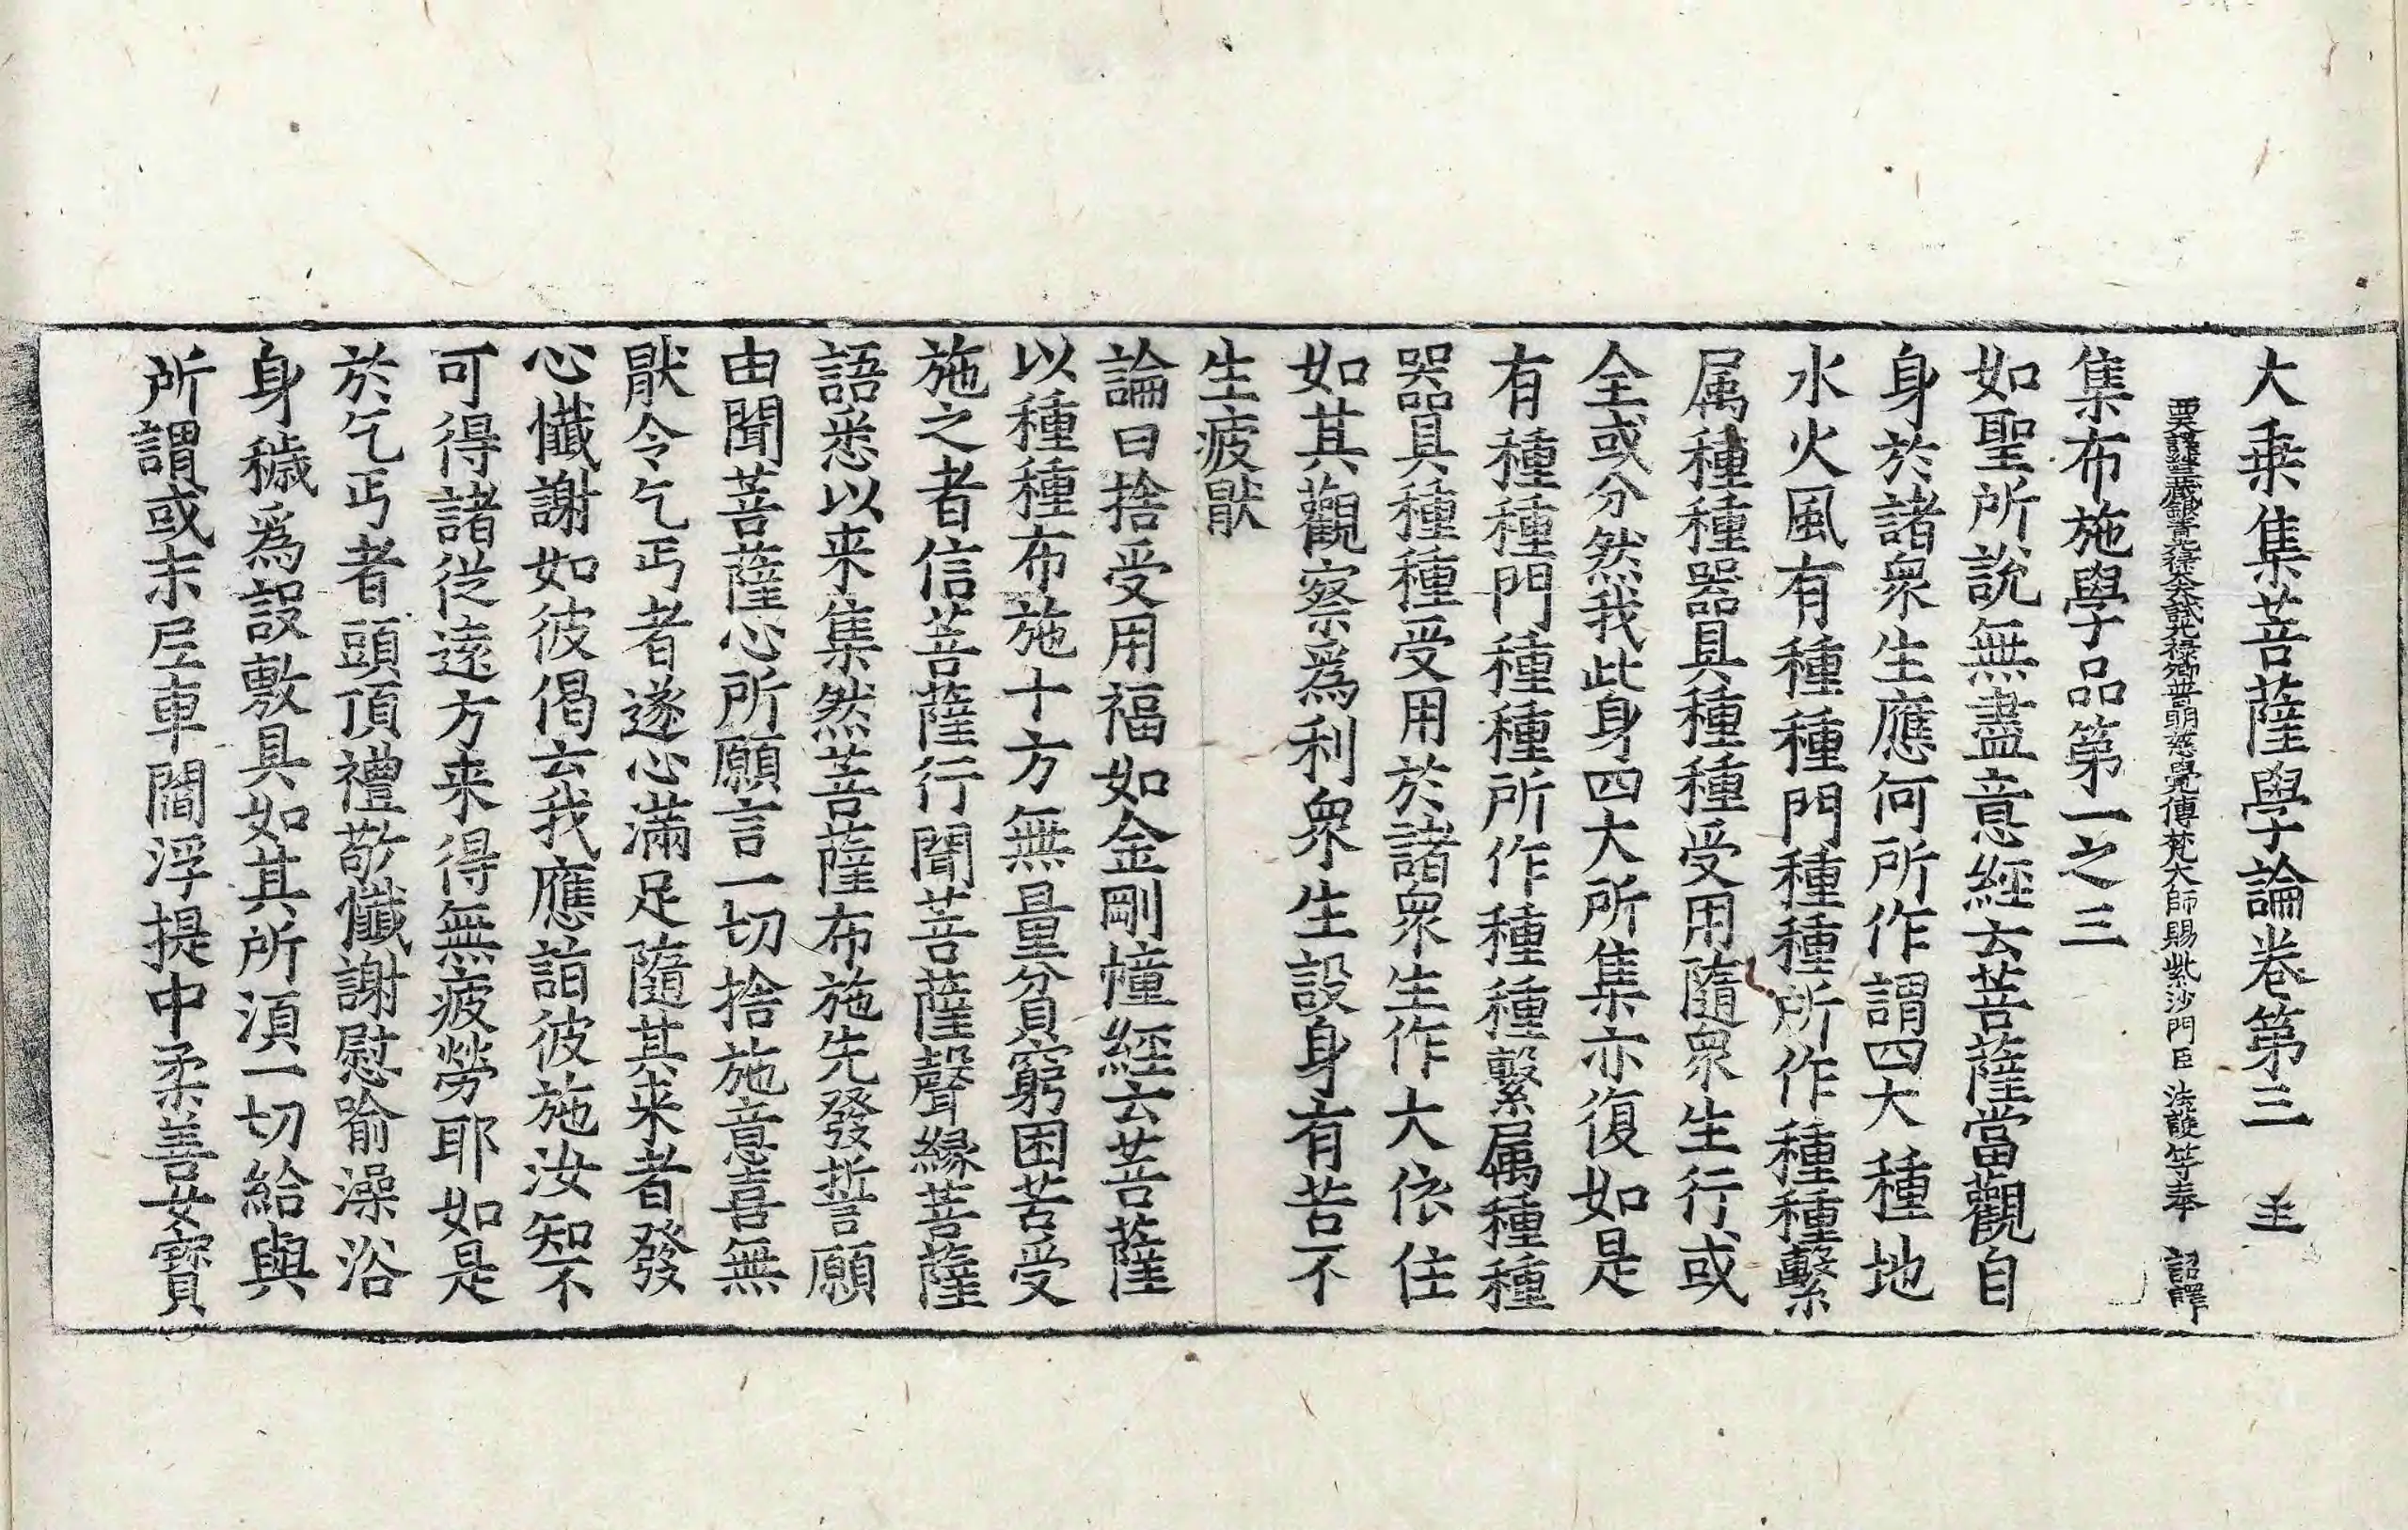 大乗集菩薩學論卷第三 主
西天譯經三藏銀青光祿大夫試光祿卿普明慈覺傳梵大師賜紫沙門臣法護等奉 詔譯
集布施學品第一之三
如聖所説無盡意經云菩薩當觀自
身於諸衆生應何所作謂四大種地
水火風有種種門種種所作種種繫
属種種器具種種受用隨衆生行或
全或分然我此身四大所集亦復如是
有種種門種種所作種種繫属種種
器具種種受用於諸衆生作大依住
如其觀察爲利衆生設身有苦不
生疲猒
論曰捨受用福如金剛幢經云菩薩
以種種布施十方無量貧窮困苦受
施之者信菩薩行聞菩薩聲緣菩薩
語悉以来集然菩薩布施先發誓願
由聞菩薩心所願言一切捨施意喜無
猒令乞丐者遂心滿足隨其来者發
心懺謝如彼偈云我應詣彼施汝知不
可得諸從遠方来得無疲勞耶如是
於乞丐者頭頂禮敬懺謝慰喻澡浴
身穢爲設敷具如其所湏一切給與
所謂或末尼車閻浮提中柔善女寳